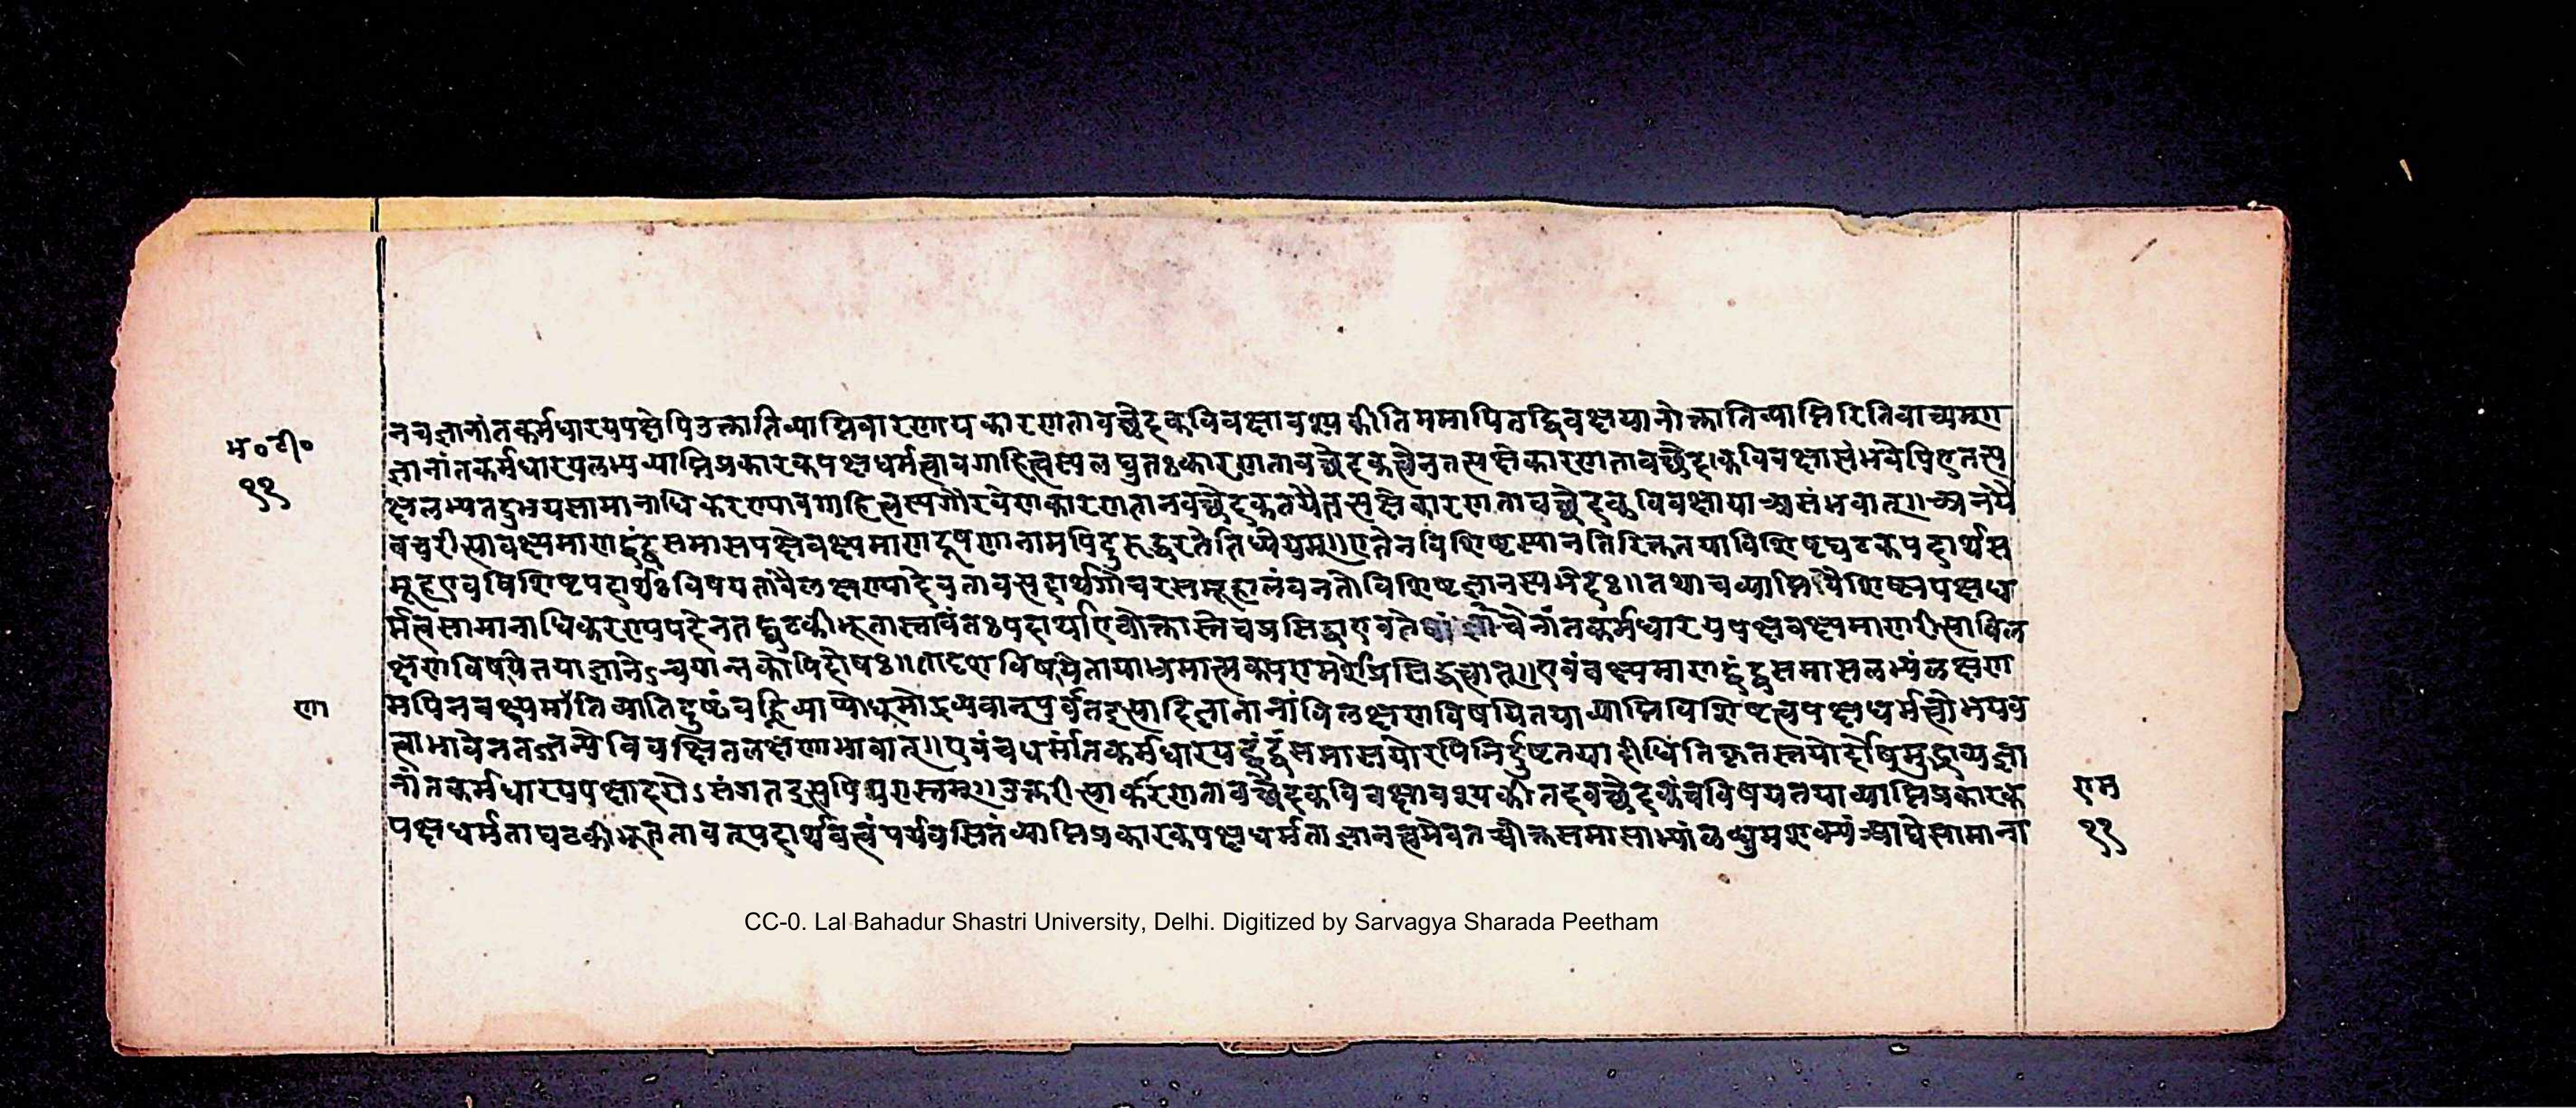 भ०टी०
११
नचज्ञानांतकर्मधारयपक्षेपिउक्तातिव्याप्तिवारणायकारणतावच्छेदकविवक्षावश्यकीतिममापितद्विवक्षयानोक्तातिव्याप्तिरितिवाच्यमग
ज्ञानांतकर्मधारयलभ्यव्याप्तिप्रकारकपक्षधर्मत्वावगाहित्वस्यलघुतःकारणतावच्छेदकत्वेनतत्पक्षेकारणतावच्छेदकविवक्षासंभवेपिएतत्प
क्षलभ्यतदुभयसामानाधिकरण्यावगाहित्वस्यगौरवेणकारणतानवच्छेदकतयैतत्पक्षेकारणतावच्छेदकविवक्षायाअसंभवात्॥अनयै
वचरीत्यावक्ष्यमाणद्वंद्वसमासपक्षेवक्ष्यमाणदूषणानामपिदुरुद्धरतेतिध्येयम्॥एतेनविशिष्टस्यानतिरिक्ततयाविशिष्टघटकपदार्थस
मूहएवविशिष्टपदार्थःविषयतावैलक्षण्यादेवतावत्पदार्थगोचरसमूहालंबनतोविशिष्टज्ञानस्यभेदः॥तथाचव्याप्तिवैशिष्ट्यपक्षध
र्मत्वसामानाधिकरण्यपदेनतद्घटकीभूतास्तावंतःपदार्थाएवोक्तास्तेचप्रसिद्धाएवतेषांनांतकर्मधारयपक्षवक्ष्यमाणरीत्याविल
क्षणविषयितयाज्ञानेऽन्वयान्नकोपिदोषः॥तादृशविषयितायाभ्रमात्मकपरामर्शेप्रसिद्धत्वात्॥एवंवक्ष्यमाणद्वंद्वसमासलभ्यंलक्षण
णा
मपिनवक्ष्यमातिव्यातिदुष्टंवह्निव्याप्योधूमोद्रव्यवान्पर्वतइत्यादिज्ञानानांविलक्षणविषयितयाव्याप्तिविशिष्टत्वपक्षधर्मत्वोभयव
त्वाभावेनतज्जन्येविवक्षितलक्षणाभावात्॥एवंचधर्मांतकर्मधारयद्वंद्वसमासयोरपिनिर्दुष्टतयादीधितिकृतस्तयोर्दोषमुद्भाव्यज्ञा
नांतकर्मधारयपक्षादरोऽसंगतइत्यपिपरास्तम्॥उक्तरीत्याकारणतावच्छेदकविवक्षावश्यकीतदवच्छेदकंचविषयतयाव्याप्तिप्रकारक
पक्षधर्मताघटकीभूततावत्पदार्थवत्वंपर्यवसितंव्याप्तिप्रकारकपक्षधर्मताज्ञानत्वमेवतच्चोक्तसमासाभ्यांलब्धुमशक्यंव्याप्तेसामाना
राम
११
CC-0. Lal Bahadur Shastri University, Delhi. Digitized by Sarvagya Sharada Peetham